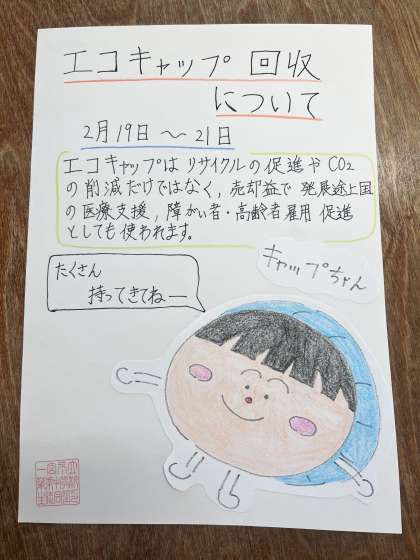 エコキャップ 回収
について
2月19日 ～ 21日
エコキャップはリサイクルの促進やCO2
の削減だけではなく, 売却益で 発展途上国
の医療支援, 障がい者・高齢者雇用 促進
としても使われます。
キャップちゃん
たくさん
持ってきてねー